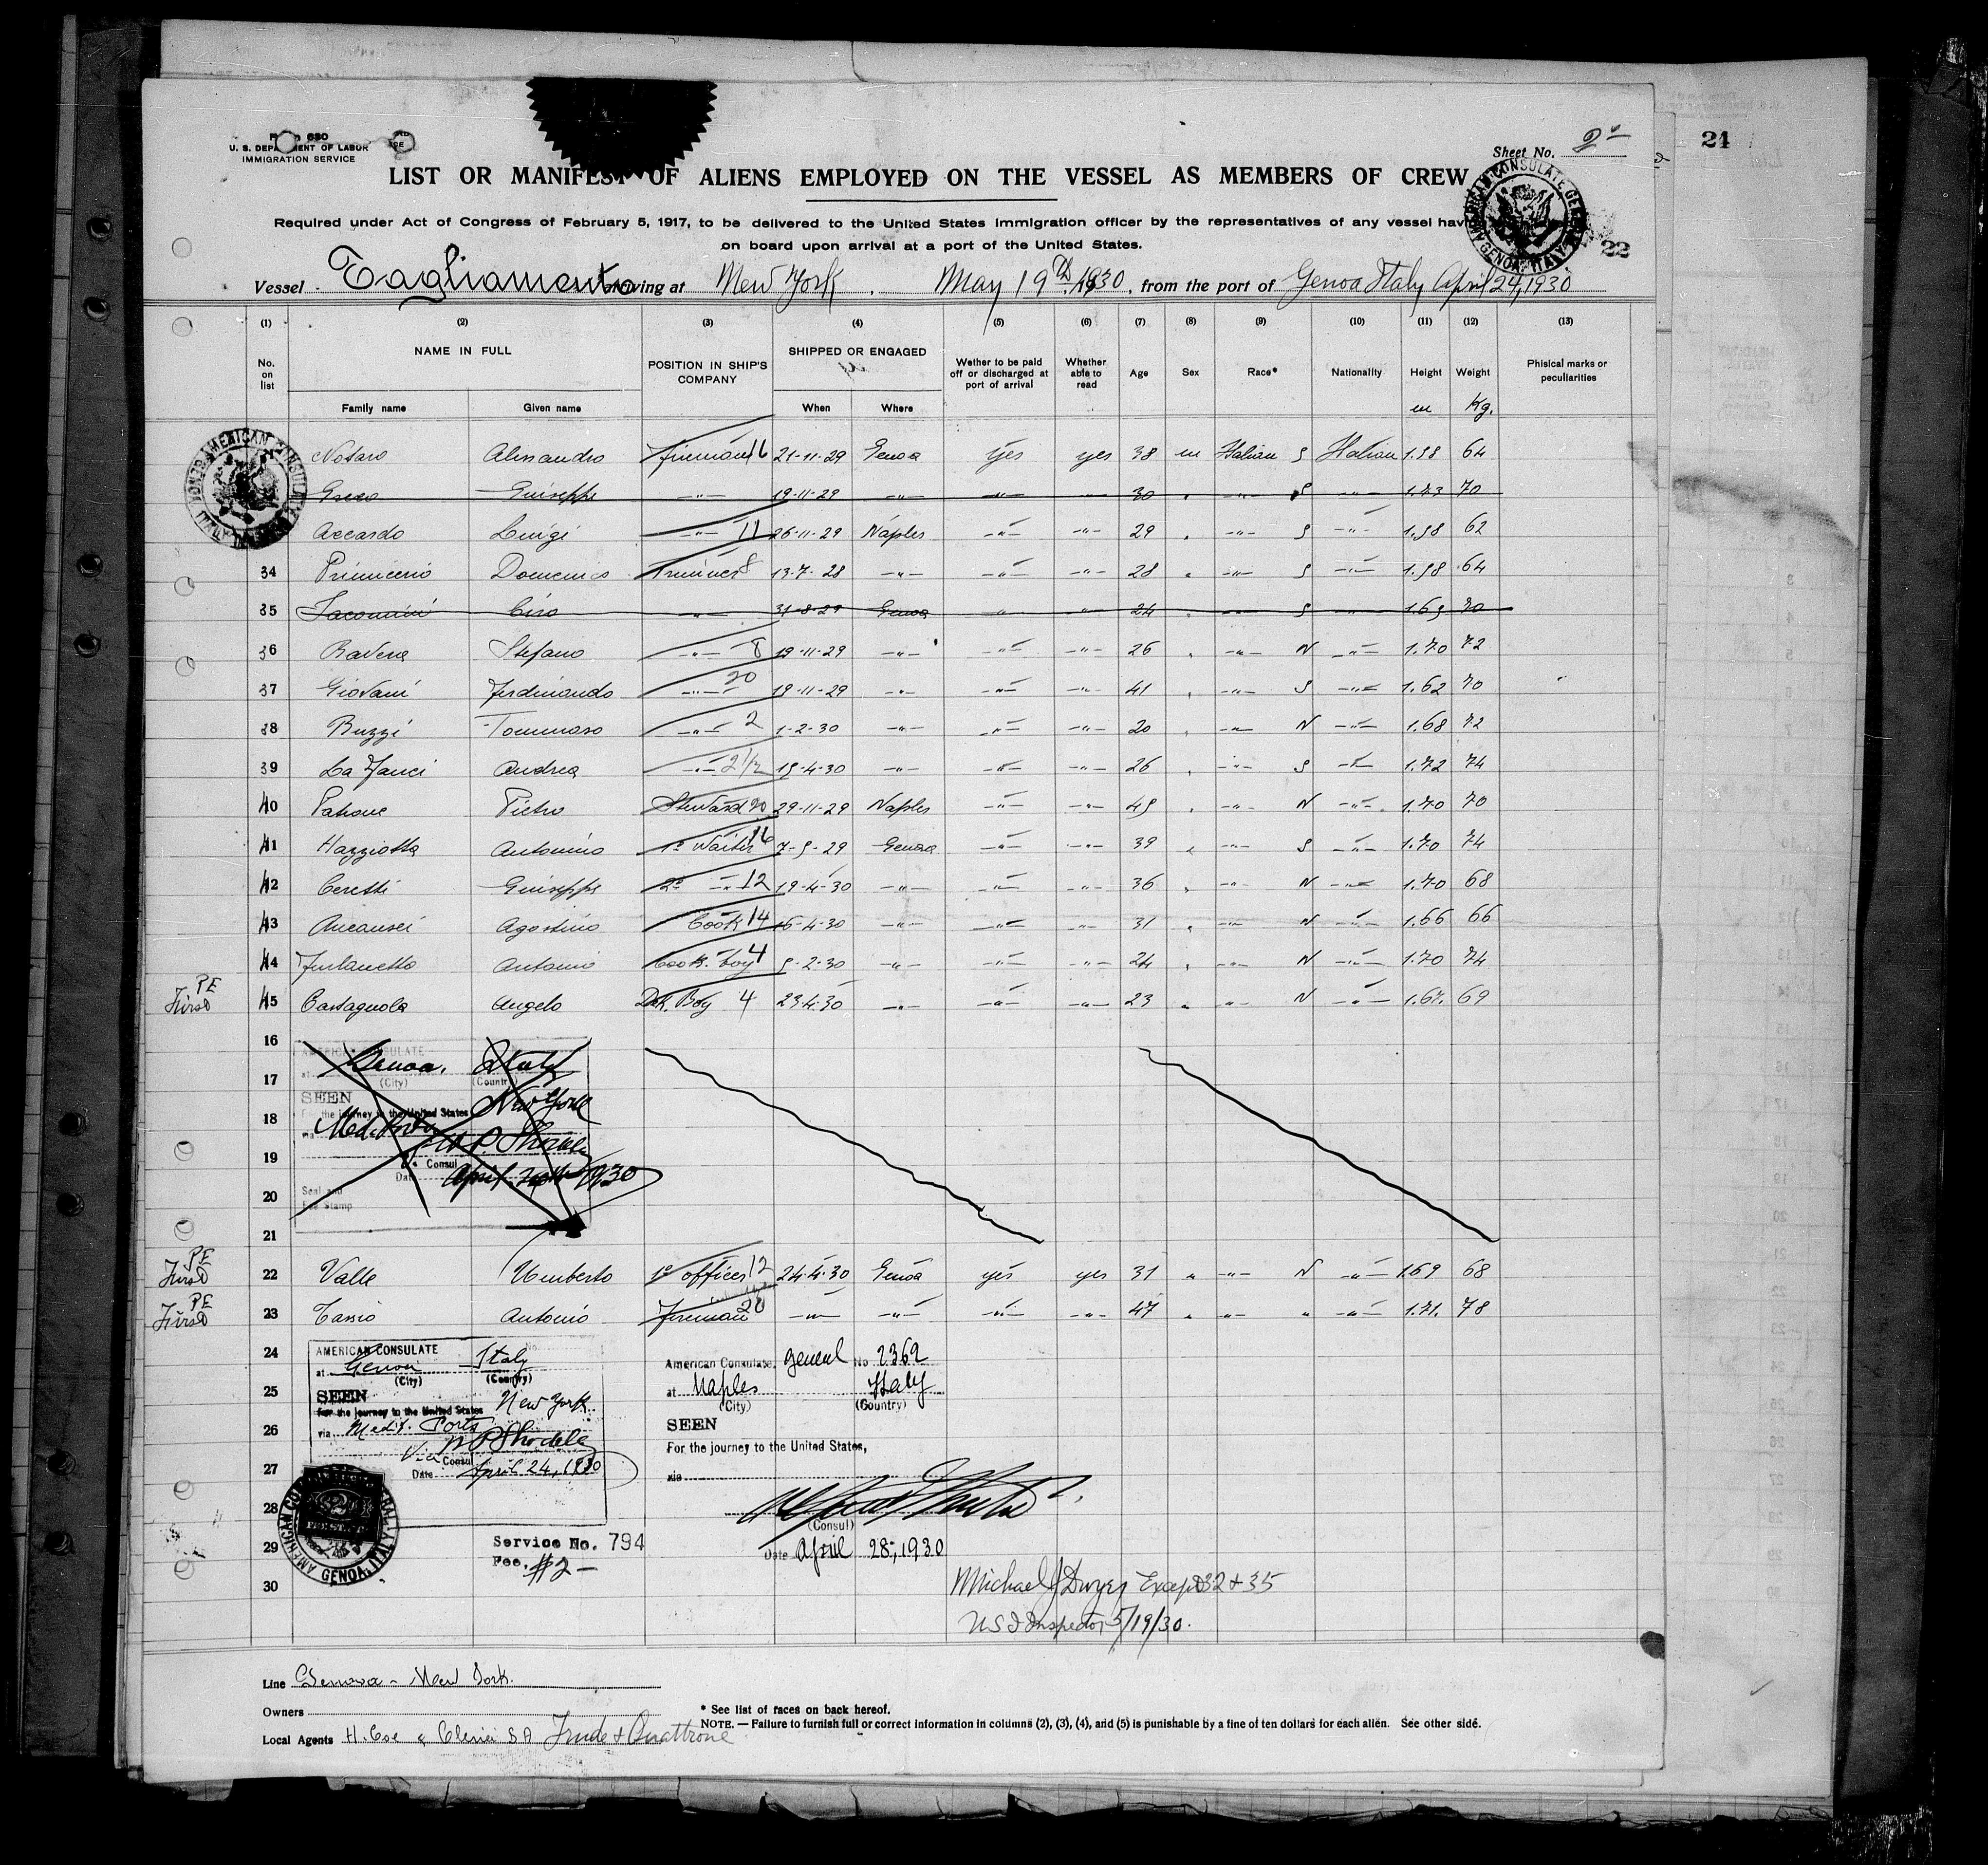 Form 630
U. S. DEPARTMENT OF LABOR
IMMIGRATION SERVICE
Sheet No. 2
21
LIST OR MANIFEST OF ALIENS EMPLOYED ON THE VESSEL AS MEMBERS OF CREW
Required under Act of Congress of February 5, 1917, to be delivered to the United States Immigration officer by the representatives of any vessel hav
on board upon arrival at a port of the United States.
22
Vessel Tagliamento arriving at New York, May 19th, 1930, from the port of Genoa Italy April 24, 1930
(1) (2) (3) (4) (5) (6) (7) (8) (9) (10) (11) (12) (13)
No. on list NAME IN FULL POSITION IN SHIP'S COMPANY SHIPPED OR ENGAGED Wether to be paid off or discharged at port of arrival Whether able to read Age Sex Race* Nationality Height Weight Phisical marks or peculiarities
Family name Given name When Where m Kg.
Notaro Alessandro fireman 16 21-11-29 Genoa yes yes 38 m Italian S Italian 1.58 64
Greco Guiseppe -"- 19-11-29 -"- -"- -"- 30 " -"- S -"- 1.73 70
Accardo Luigi -"- 11 26-11-29 Naples -"- -"- 29 " -"- S -"- 1.58 62
34 Domenico Trimmer 8 13-7-28 -"- -"- -"- 28 " -"- S -"- 1.58 64
35 Ciro -"- 31-8-29 Genoa -"- -"- 24 " -"- S -"- 1.65 70
36 Ravera Stefano -"- 8 19-11-29 -"- -"- -"- 26 " -"- N -"- 1.70 72
37 Giovani Ferdinando -"- 20 19-11-29 -"- -"- -"- 41 " -"- S -"- 1.62 70
38 Buzzi Tommaso -"- 2 1-2-30 -"- -"- -"- 20 " -"- N -"- 1.68 72
39 La Fauci Andrea -"- 2 1/2 15-4-30 -"- -"- -"- 26 " -"- S -"- 1.72 74
40 Pahove Pietro Steward 20 29-11-29 Naples -"- -"- 45 " -"- N -"- 1.70 70
41 Hazziotta Antonino 1° Waiter 16 7-5-29 Genoa -"- -"- 39 " -"- S -"- 1.70 74
42 Ceretti Guiseppe 2° -"- 12 19-4-30 -"- -"- -"- 36 " -"- N -"- 1.70 68
43 Agostino Cook 14 16-4-30 -"- -"- -"- 31 " -"- N -"- 1.66 66
44 Furlanetto Antonio Cook boy 4 5-2-30 -"- -"- -"- 24 " -"- N -"- 1.70 74
PE First 45 Castagnola Angelo Dek. Boy 4 23-4-30 -"- -"- -"- 23 " -"- N -"- 1.67 69
16 AMERICAN CONSULATE
at Genoa, Italy
17 (City) (Country)
SEEN
for the journey to the United States New York
18
via Med. Ports
19 Consul
Date April 24th 1930
20 Seal and
Fee Stamp
21
PE First 22 Valle Umberto 1° officer 12 24-4-30 Genoa yes yes 31 " -"- N -"- 1.69 68
PE First 23 Tassio Antonio Fireman 20 -"- -"- -"- -"- 47 " -"- " -"- 1.71 78
24 AMERICAN CONSULATE
at Genoa Italy
(City) (Country)
25 SEEN
for the journey to the United States New York
26 via Medit. Ports
Vice Consul
27 Date April 24, 1930
28
29 Service No. 794
Fee. $2-
30
American Consulate general No 2362
at Naples Italy
(City) (Country)
SEEN
For the journey to the United States,
via
(Consul)
Date April 28, 1930
Michael J Dwyer Except 32 + 35
US I Inspector 5/19/30.
AMERICAN CONSULATE GENERAL GENOA, ITALY
Line Genova - New York.
Owners
Local Agents H. Coe & Clerici S A Trude + Quattrone
* See list of races on back hereof.
NOTE. — Failure to furnish full or correct information in columns (2), (3), (4), and (5) is punishable by a fine of ten dollars for each alien. See other side.